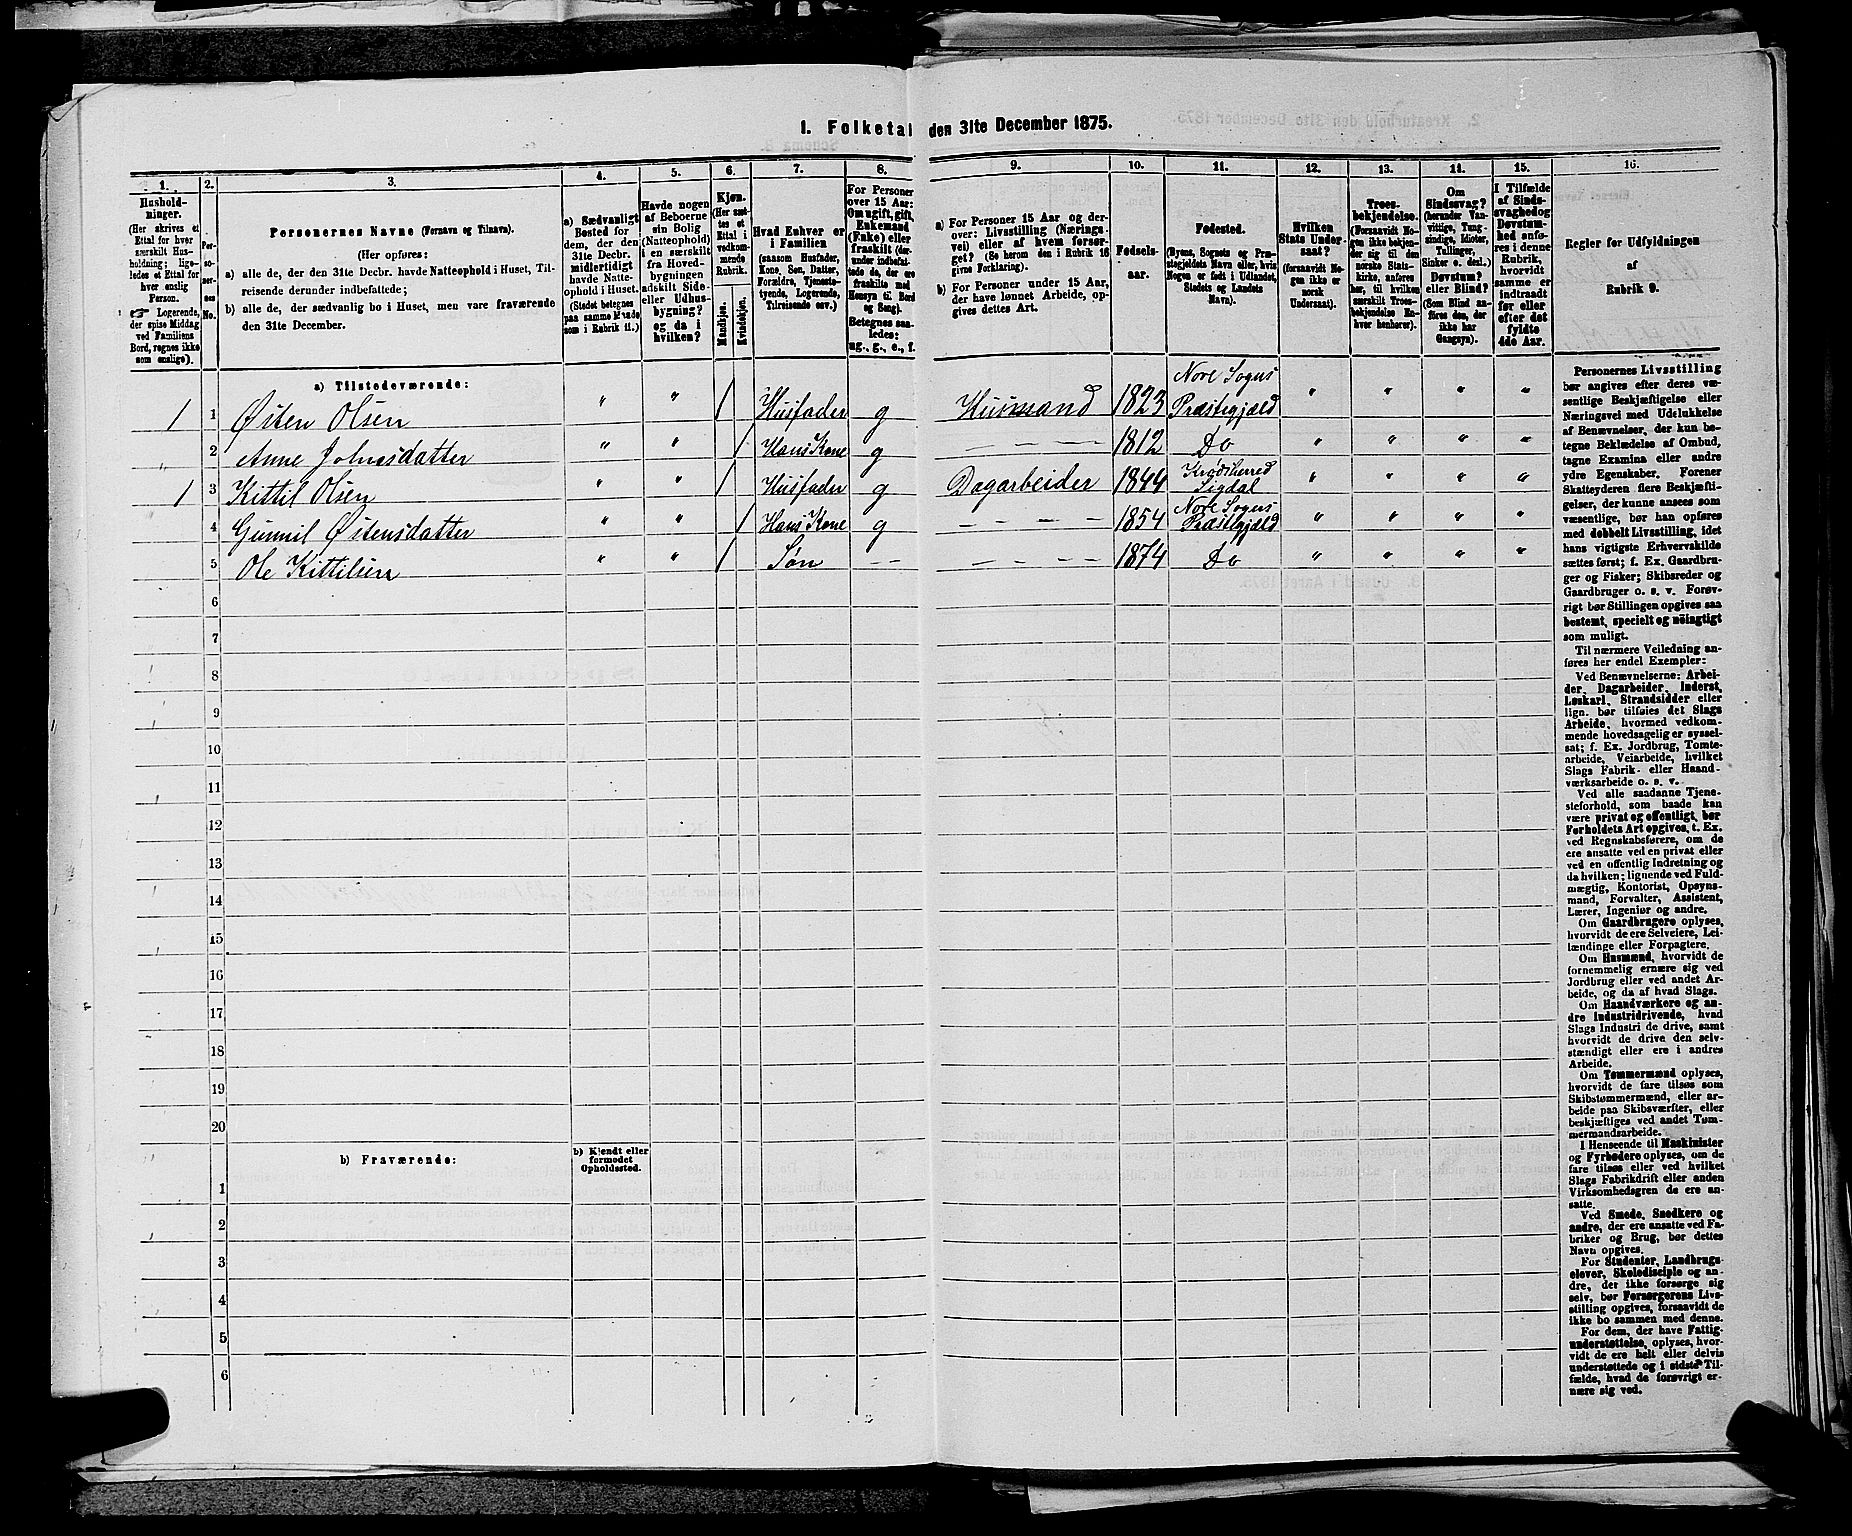 I. Folketal den 31te December 1875.
1.
Husholdninger.
(Her skrives et
Ettal for hver
særskilt Husholdning; ligeledes et Ettal for
hver enslig
Person.
☞ Logerende,
der spise Middag
ved Familiens
Bord, regnes ikke
som enslige).
2.
Personernes
No.
3.
Personernes Navne (Fornavn og Tilnavn).
(Her opføres:
a) alle de, der den 31te Decbr. havde Natteophold i Huset, Tilreisende derunder indbefattede;
b) alle de, der sædvanlig bo i Huset, men vare fraværende
den 31te December.
4.
a) Sædvanligt
Bosted for
dem, der den
31te Decbr.
midlertidigt
havde Natteophold i Huset.
(Stedet betegnes
paa samme Maade
som i Rubrik 11.)
5.
Havde nogen
af Beboerne
sin Bolig
(Natteophold)
i en særskilt
fra Hovedbygningen
adskilt Side- eller Udhusbygning?
og da i
hvilken?
6.
Kjøn.
(Her sættes et
Ettal i
vedkommende
Rubrik.
Mandkjøn.
Kvindekjøn.
7.
Hvad Enhver er
i Familien
(saasom Husfader,
Kone, Søn, Datter,
Forældre, Tjenestetyende, Logerende,
Tilreisende osv.)
8.
For Personer
over 15 Aar:
Om ugift, gift,
Enkemand
(Enke) eller
fraskilt (derunder indbefattede de, der ere
fraskilte med
Hensyn til Bord
og Seng).
Betegnes saaledes:
ug., g., e., f.
9.
a) For Personer 15 Aar og derover: Livsstilling (Næringsvei) eller af hvem forsørget? (Se herom den i Rubrik 16
givne Forklaring).
b) For Personer under 15 Aar,
der have lønnet Arbeide, opgives dettes Art.
10.
Fødselsaar.
11.
Fødested.
(Byens, Sognets og Præstegjældets Navn eller, hvis
Nogen er født i Udlandet,
Stedets og Landets
Navn).
12.
Hvilken
Stats Undersaat?
(forsaavidt Nogen ikke er
norsk
Undersaat).
13.
Troesbekjendelse.
(Forsaavidt Nogen ikke bekjender sig til den
norske Statskirke, anføres
her, til hvilken
særskilt Troesbekjendelse Enhver henhører).
14.
Om
Sindssvag?
(herunder Vanvittige, Tungsindige, Idioter,
Tullinger,
Sinker o. desl.).
Døvstum?
eller Blind?
(Som Blind anføres den, der
ikke har
Gangsyn).
15.
I Tilfælde
af Sindssvaghed og
Døvstumhed anføres i denne
Rubrik,
hvorvidt
samme er
indtraadt
før eller
efter det
fyldte
4de Aar.
16.
Regler for Udfyldningen
af
Rubrik 9.
a) Tilstedeværende:
1 1 Østen Olsen " " 1 Husfader g Husmand 1823 Nore Sogns Præstegjæld " " " "
" 2 Anne Johnsdatter " " 1 Hans Kone g — — — 1812 Do " " " "
1 3 Kittil Olsen " " 1 Husfader g Dagarbeider 1844 Krødsherred Sigdal " " " "
4 Gunnil Østensdatter " " 1 Hans Kone g — — — — 1854 Nore Sogns Præstegjæld " " " "
5 Ole Kittilsen " " 1 Søn — — — — — — 1874 Do " " " "
6
7
8
9
10
11
12
13
14
15
16
17
18
19
20
b) Fraværende:
b) Kjendt eller
formodet
Opholdssted.
1
2
3
4
5
6
Personernes Livsstilling
bør angives efter deres væsentlige Beskjæftigelse eller
Næringsvei med Udelukkelse
af Benævnelser, der kun betegne Beklædelse af Ombud,
tagne Examina eller andre
ydre Egenskaber. Forener
Skatteyderen flere Beskjæftigelser, der kunne ansees som
væsentlige, bør han opføres
med dobbelt Livsstilling, idet
hans vigtigste Erhvervskilde
sættes først; f. Ex. Gaardbruger og Fisker; Skibsreder og
Gaardbruger o. s. v. Forøvrigt bør Stillingen opgives saa
bestemt, specielt og nöiagtigt
som muligt.
Til nærmere Veiledning anføres her endel Exempler:
Ved Benævnelserne: Arbeider, Dagarbeider, Inderst,
Løskarl, Strandsidder eller
lign. bør tilføies det Slags
Arbeide, hvormed vedkommende hovedsagelig er sysselsat; f. Ex. Jordbrug, Tomtearbeide, Veiarbeide, hvilket
Slags Fabrik- eller Haandværksarbeide o. s. v.
Ved alle saadanne Tjenesteforhold, som baade kan
være privat og offentligt, bør
Forholdets Art opgives, t. Ex.
ved Regnskabsførere, om de
ere ansatte ved en privat eller
ved en offentlig Indretning og
da hvilken; lignende ved Fuldmægtig, Kontorist, Opsynsmand, Forvalter, Assistent,
Lærer, Ingeniør og andre.
Om Gaardbrugere oplyses,
hvorvidt de ere Selveiere, Leilændinge eller Forpagtere.
Om Husmænd, hvorvidt de
fornemmelig ernære sig ved
Jordbrug eller ved andet Arbeide, og da af hvad Slags.
Om Haandværkere og andre Industridrivende, hvad
Slags Industri de drive, samt
hvorvidt de drive den selvstændigt eller ere i andres
Arbeide.
Om Tømmermænd oplyses,
hvorvidt de fare tilsøs som
Skibstømmermænd, eller arbeide paa Skibsværfter, eller
beskjæftiges ved andet Tømmermandsarbeide.
I Henseende til Maskinister
og Fyrbødere oplyses, om de
fare tilsøs eller ved hvilket
Slags Fabrikdrift eller anden
Virksomhedsgren de ere ansatte.
Ved Smede, Snedkere og
andre, der ere ansatte ved Fabriker og Brug, bør dettes
Navn opgives.
For Studenter, Landbrugselever, Skoledisciple og andre, der ikke forsørge sig
selv, bør Forsørgerens Livsstilling opgives, forsaavidt de
ikke bo sammen med denne.
For dem, der have Fattigunderstøttelse, oplyses, hvorvidt de ere helt eller delvis
understøttede og i sidste Tilfælde, hvad de forøvrigt ernære sig ved.